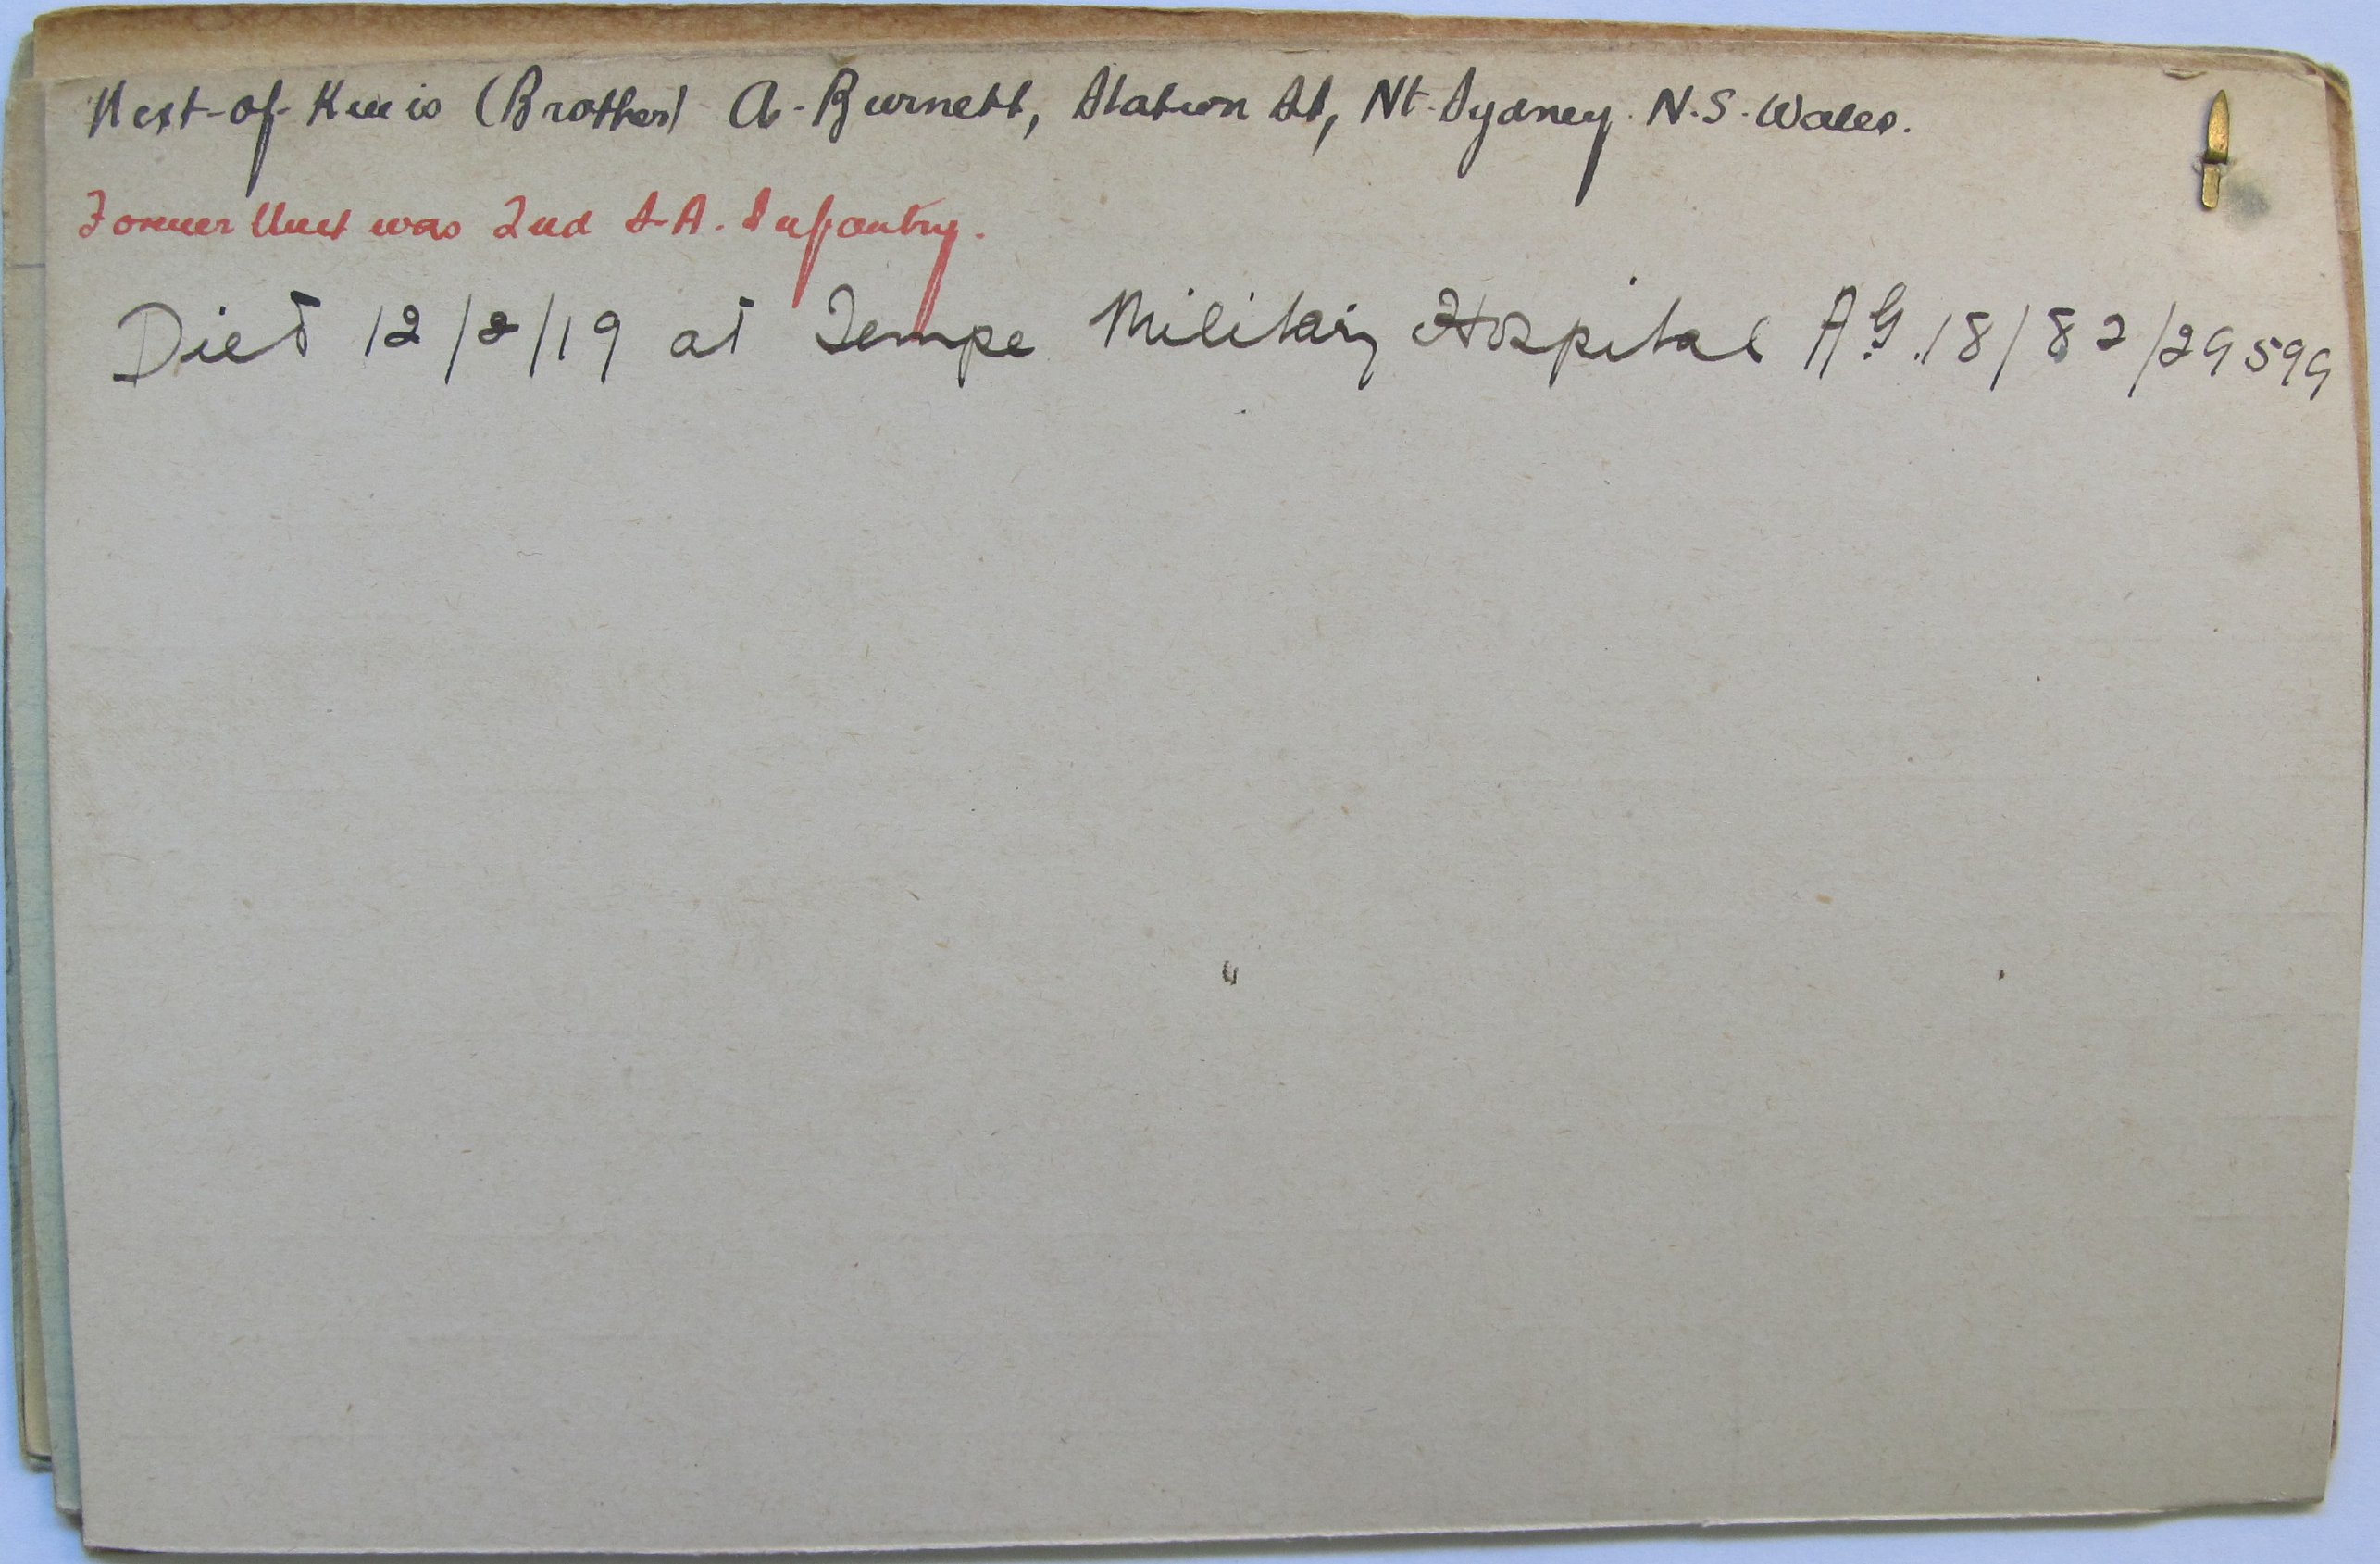 Next-of-Kin is (Brother) A. Burnett, Station St, Nt. Sydney. N.S. Wales.
Former Unit was 2nd S.A. Infantry.
Died 12/2/19 at Tempe Military Hospital AG.18/82/29599